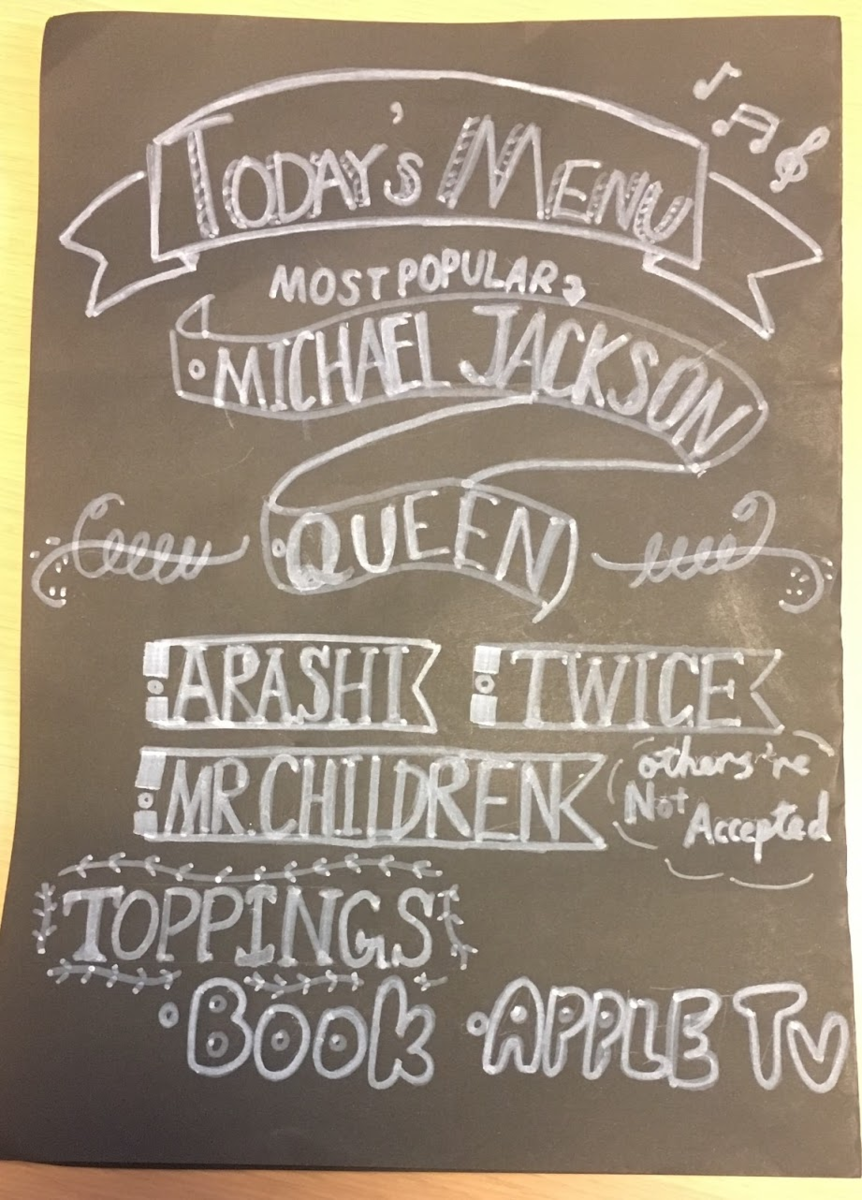 TODAY'S MENU
MOST POPULAR
MICHAEL JACKSON
QUEEN
ARASHI TWICE
MR.CHILDREN
others're
Not Accepted
TOPPINGS
・Book ・APPLE TV